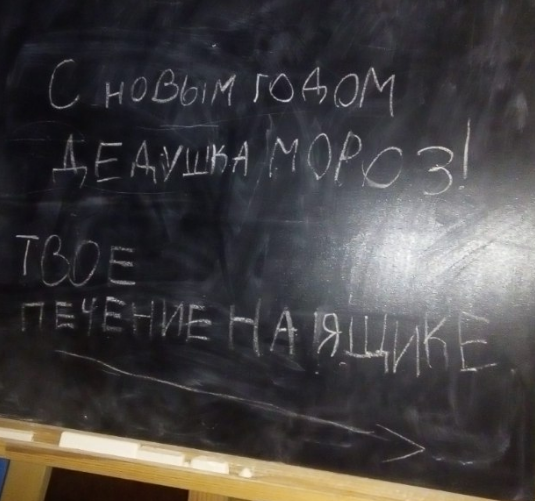 С НОВЫМ ГОДОМ
ДЕДУШКА МОРОЗ!
ТВОЕ
ПЕЧЕНИЕ НА ЯЩИКЕ